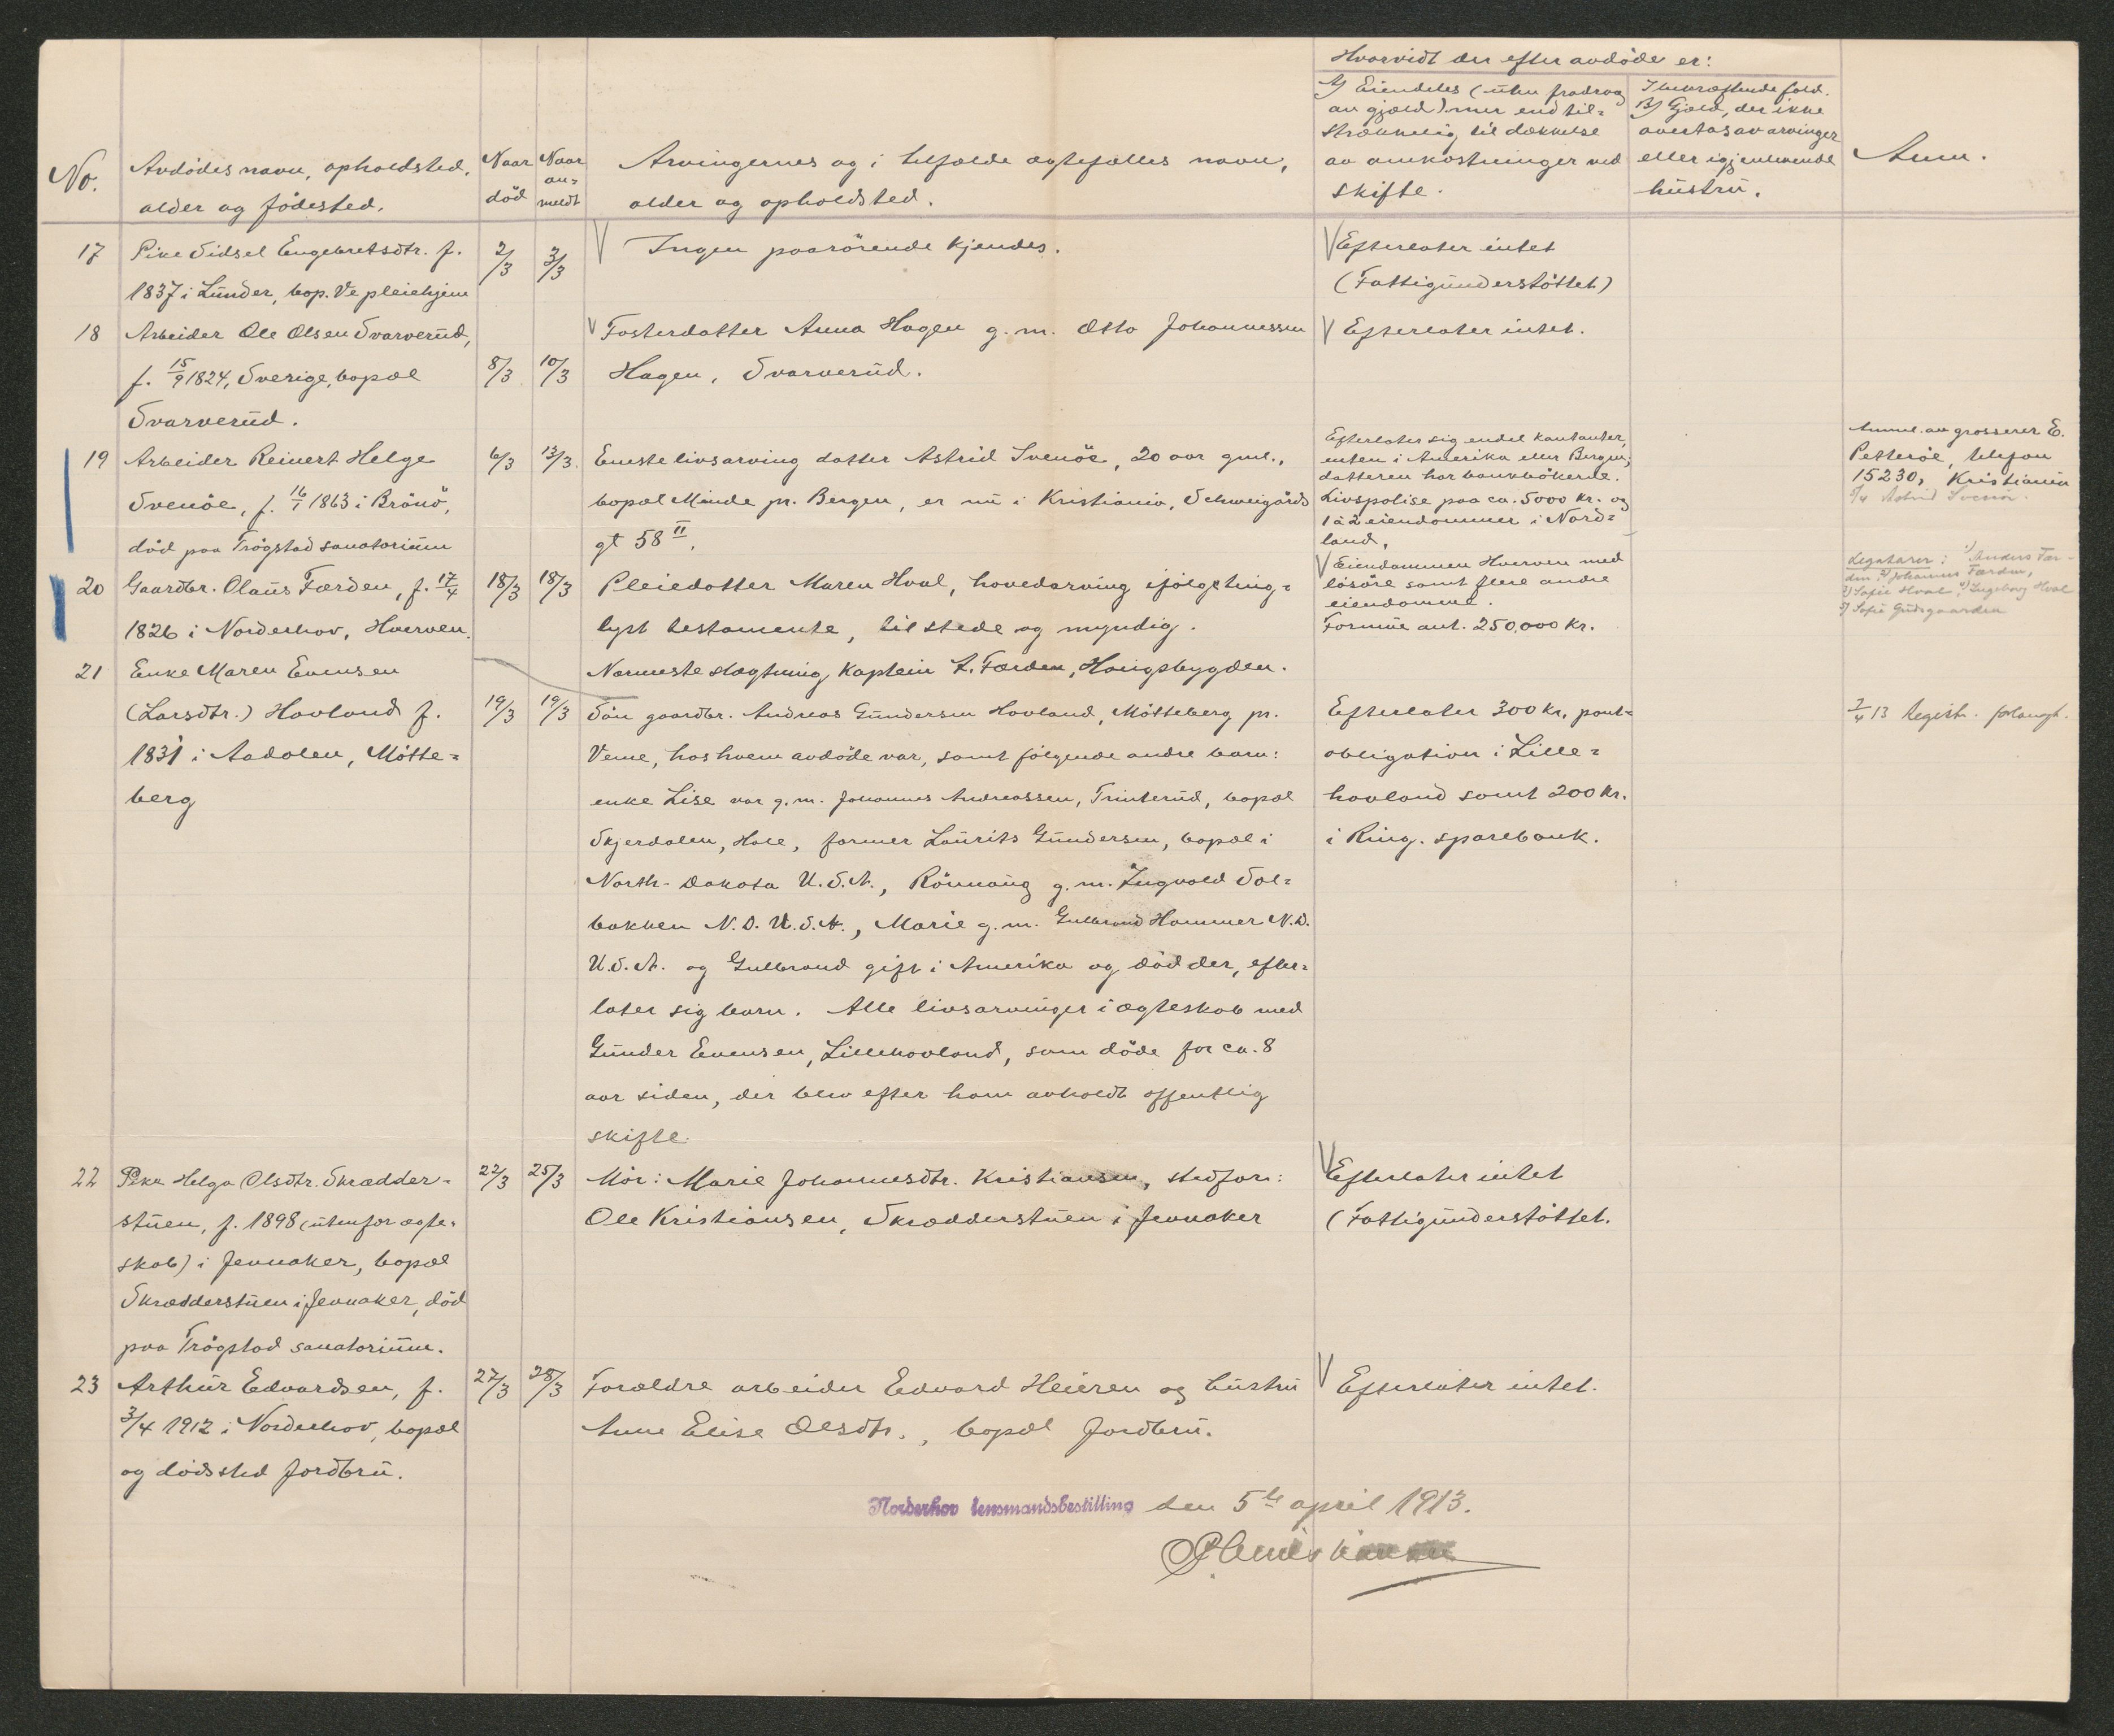 Hvorvidt der efter avdöde er:
No.
Avdödes navn, opholdsted,
alder og födested.
Naar
död
Naar
an=
meldt
Arvingernes og i tilfælde ægtefælles navn,
alder og opholdsted.
A) Eiendeles (uten fradrag
av gjæld) mer end til=
strækkelig til dækkelse
av omkostninger ved
skifte.
I benægtende fald.
B) Gjæld, der ikke
overtas av arvinger
eller igjenlevende
hustru.
Anm.
17
Pike Sidsel Engebretsdtr. f.
1837 i Lunder, bop. Ve pleiehjem
2/3
3/3
Ingen paarörende kjendes.
Efterlater intet
(Fattigunderstöttet)
18
Arbeider Ole Olsen Svarverud,
f. 15/9 1824, Sverige, bopæl
Svarverud.
8/3
10/3
Fosterdatter Anna Hagen g.m. Otto Johannessen
Hagen, Svarverud.
Efterlater intet.
19
Arbeider Reinert Helge
Svenöe, f. 16/1 1863 i Brönö,
död paa Trögstad sanatorium
6/3
13/3.
Eneste livsarving datter Astrid Svenöe, 20 aar gml.,
bopæl Minde pr. Bergen, er nu i Kristiania, Schweigårds
gt 58 II.
Efterlater sig endel kontanter,
enten i Amerika eller Bergen;
datteren har bankbökerne.
Livspolise paa ca. 5000 kr. og
1 à 2 eiendommer i Nord=
land.
Anmel. av grosserer E.
Petteröe, telefon
15230, Kristiania
Astrid Svenöe.
20
Gaardbr. Olaus Færden, f. 17/4
1826 i Norderhov, Hverven.
18/3
18/3
Pleiedatter Maren Hval, hovedarving ifölge ting=
lyst testamente, til stede og myndig.
Nærmeste slægtning Kaptein L. Færden, Haugsbygden.
Eiendommen Hverven med
lösöre samt flere andre
eiendomme.
Formue ant. 250,000 kr.
Legatarer: 1) Anders Fær-
den 2) Johannes Færden,
3) Sofie Hval, 4) Ingeborg Hval
5) Sofie Gudsgaarden
21
Enke Maren Evensen
(Larsdtr.) Hovland f.
1831 i Aadalen, Mötte=
berg
19/3
19/3
Sön gaardbr. Andreas Gundersen Hovland, Mötteberg pr.
Veme, hos hvem avdöde var, samt fölgende andre barn:
enke Lise var g.m. Johannes Andreassen, Trinterud, bopæl
Skjerdalen, Hole, farmer Laurits Gundersen, bopæl i
North-Dakota U.S.A., Rönnaug g.m. Ingvald Sol=
bakken N.D. U.S.A., Marie g.m. Gulbrand Hammer N.D.
U.S.A. og Gulbrand gift i Amerika og död der, efter=
later sig barn. Alle livsarvinger i ægteskab med
Gunder Evensen, Lillehovland, som döde for ca. 8
aar siden, der blev efter ham avholdt offentlig
skifte.
Efterlater 300 kr. pant=
obligation i Lille=
hovland samt 200 kr.
i Ring. sparebank.
7/4 13 Registr. forlangt.
22
Pike Helga Olsdtr. Skrædder=
stuen, f. 1898 (utenfor ægte=
skab) i Jevnaker, bopæl
Skrædderstuen i Jevnaker, död
paa Trögstad sanatorium.
22/3
25/3
Mor: Marie Johannesdtr. Kristiansen, stedfar:
Ole Kristiansen, Skrædderstuen i Jevnaker
Efterlater intet
(Fattigunderstöttet.
23
Arthur Edvardsen, f.
3/4 1912 i Norderhov, bopæl
og dödssted Jordbru.
27/3
28/3
Forældre arbeider Edvard Heieren og hustru
Anne Elise Olsdtr., bopæl Jordbru.
Efterlater intet.
Norderhov lensmandsbestilling den 5te april 1913.